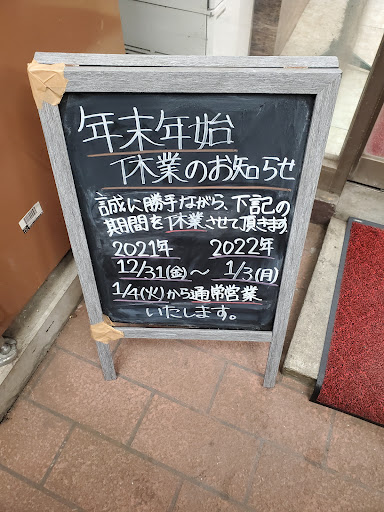 年末年始
休業のお知らせ
誠に勝手ながら、下記の
期間を休業させて頂きます
2021年 2022年
12/31(金)〜1/3(月)
1/4(火)から通常営業
いたします。